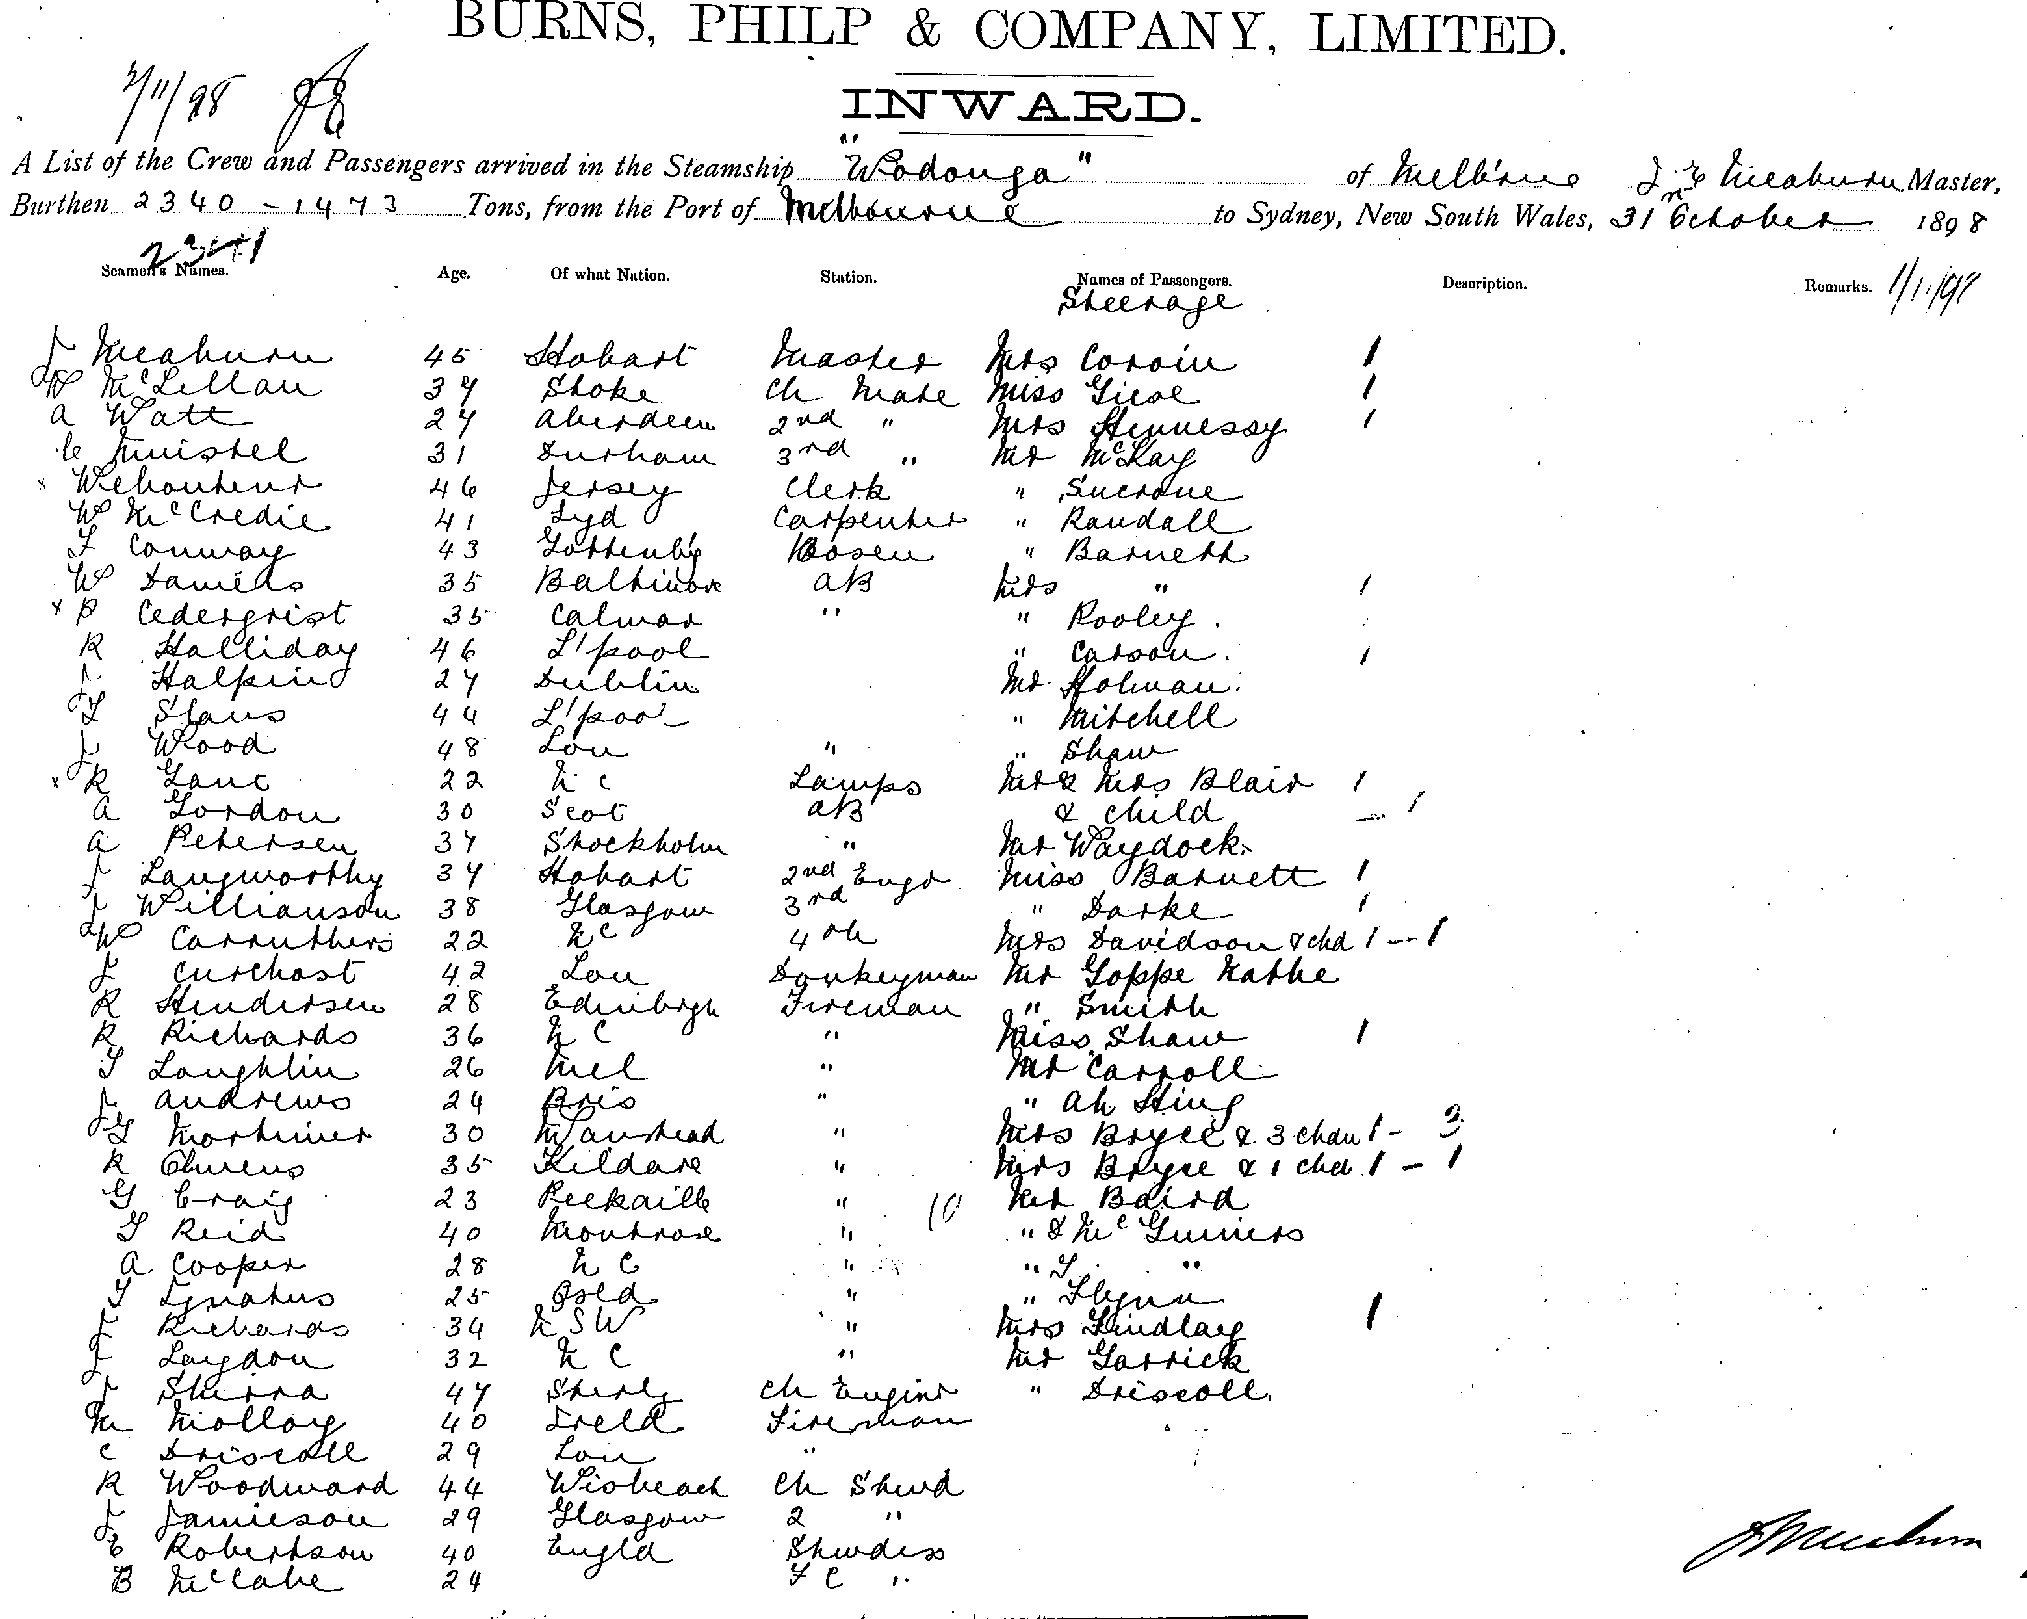 BURNS, PHILP & COMPANY, LIMITED.
2/11/98
INWARD.
A List of the Crew and Passengers arrived in the Steamship "Wodonga" of Melb'rne J Meaburn Master,
Burthen 2340 - 1473 Tons, from the Port of Melbourne to Sydney, New South Wales, 31 October 1898
2341
Seamen's Names. Age. Of what Nation. Station. Names of Passengers. Description. Remarks.
Steerage
J Meaburn 45 Hobart Master Mrs Corvin 1
W McLellan 37 Stoke Ch Mate Miss Giese 1
A Watt 27 Aberdeen 2nd " Mrs Hennessy 1
31 Durham 3rd " Mr McKay
46 Jersey Clerk "
W McCredie 41 Lyd Carpenter " Randall
T Conway 43 Gottenb'g Bosen " Barnett
W Daniels 35 Baltimore AB Mrs " 1
x P Cedergrist 35 Calmar " " Rooley.
R Halliday 46 L'pool " Carson. 1
J Halpin 27 Dublin Mr Holman.
T Slaus 44 L'pool " Mitchell
J Wood 48 Lon " " Shaw
x R Lane 22 N C Lamps Mr & Mrs Blair 1
A Gordon 30 Scot AB & child - 1
A Petersen 37 Stockholm " Mr Waydock.
J Langworthy 37 Hobart 2nd Engr Miss Barnett 1
J Williamson 38 Glasgow 3rd " Darke 1
W Carruthers 22 N C 4th Mrs Davidson & chd 1 - 1
J Curchast 42 Lon Donkeyman Mr Goppe Nathe
R Hendersen 28 Edinbrgh Fireman " Smith
R Richards 36 N C " Miss Shaw 1
T Loughlin 26 Mel " Mr Carroll
J Andrews 24 Bris " " Ah Hing
G Mortimer 30 Wanstead " Mrs Bryce & 3 chdn 1 - 3
R 35 Kildare " Mrs Bryce & 1 chd 1 - 1
G Craig 23 " 10 Mr Baird
T Reid 40 Montrose " " & McGuiniers
A Cooper 28 N C " " T "
T Ignatus 25 Qsld " " Flynn
J Richards 34 N S W " Mrs Findlay 1
J Laydon 32 N C " Mr Garrick
J Shirra 47 Ch Enginr " Driscoll.
M Molloy 40 Ireld Fireman
C Driscoll 29 Lon "
R Woodward 44 Wisbeach Ch Stwd
J Jamieson 29 Glasgow 2 "
E Robertson 40 Engld Stwdess
B McCabe 24 F C "
J Meaburn